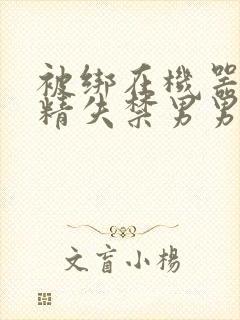 被绑在機器
精失禁男男
文盲小楊